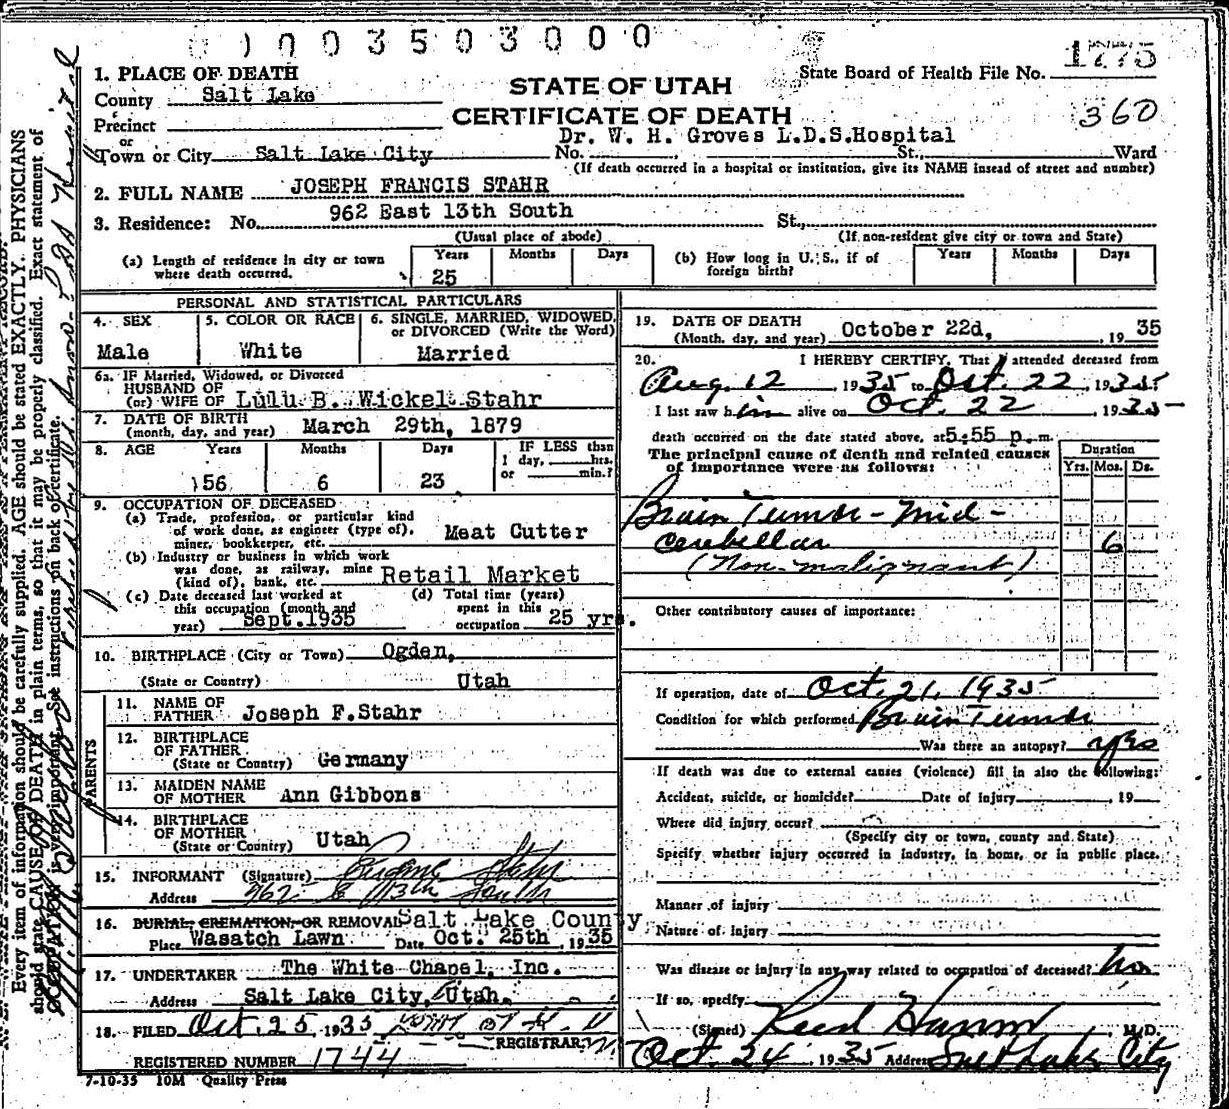 0 0 0 3 5 0 3 0 0 0
1. PLACE OF DEATH
State Board of Health File No. 1775
County Salt Lake
STATE OF UTAH
CERTIFICATE OF DEATH
360
Precinct
or
Dr. W. H. Groves L.D.S.Hospital
Town or City Salt Lake City No. , St., Ward
(If death occurred in a hospital or institution, give its NAME insead of street and number)
2. FULL NAME JOSEPH FRANCIS STAHR
3. Residence: No. 962 East 13th South St.,
(Usual place of abode) (If non-resident give city or town and State)
(a) Length of residence in city or town where death occurred. Years 25 Months Days
(b) How long in U. S., if of foreign birth? Years Months Days
PERSONAL AND STATISTICAL PARTICULARS
4. SEX Male
5. COLOR OR RACE White
6. SINGLE, MARRIED, WIDOWED, or DIVORCED (Write the Word) Married
6a. IF Married, Widowed, or Divorced
HUSBAND OF
(or) WIFE OF Lulu B. Wickel Stahr
7. DATE OF BIRTH
(month, day, and year) March 29th, 1879
8. AGE Years Months Days IF LESS than
1 day, hrs.
or min.?
56 6 23
9. OCCUPATION OF DECEASED
(a) Trade, profession, or particular kind
of work done, as engineer (type of),
miner, bookkeeper, etc. Meat Cutter
(b) Industry or business in which work
was done, as railway, mine
(kind of), bank, etc. Retail Market
(c) Date deceased last worked at
this occupation (month and
year) Sept.1935
(d) Total time (years)
spent in this
occupation 25 yrs.
10. BIRTHPLACE (City or Town) Ogden,
(State or Country) Utah
PARENTS
11. NAME OF
FATHER Joseph F.Stahr
12. BIRTHPLACE
OF FATHER
(State or Country) Germany
13. MAIDEN NAME
OF MOTHER Ann Gibbons
14. BIRTHPLACE
OF MOTHER
(State or Country) Utah
15. INFORMANT (Signature) Eugene Stahr
Address 962 E 13th South
16. BURIAL, CREMATION, OR REMOVAL Salt Lake County
Place Wasatch Lawn Date Oct. 25th, 1935
17. UNDERTAKER The White Chapel, Inc.
Address Salt Lake City, Utah.
18. FILED Oct. 25, 1935
REGISTRAR
REGISTERED NUMBER 1744
7-10-35 10M Quality Press
19. DATE OF DEATH
(Month, day, and year) October 22d, , 1935
20. I HEREBY CERTIFY, That I attended deceased from
Aug. 12 , 1935 to Oct. 22, 1935
I last saw him alive on Oct. 22 , 1935
death occurred on the date stated above, at 5:55 p.m.
The principal cause of death and related causes
of importance were as follows:
Duration
Yrs. Mos. Ds.
Brain Tumor - Mid-
cerebellar 6
(Non-malignant)
Other contributory causes of importance:
If operation, date of Oct. 21, 1935
Condition for which performed Brain Tumor
Was there an autopsy? yes
If death was due to external causes (violence) fill in also the following:
Accident, suicide, or homicide? Date of injury , 19
Where did injury occur?
(Specify city or town, county and State)
Specify whether injury occurred in industry, in home, or in public place.
Manner of injury
Nature of injury
Was disease or injury in any way related to occupation of deceased? No
If so, specify
(Signed) Reed Harrow, M.D.
Oct 24 , 1935 Address Salt Lake City
Every item of information should be carefully supplied. AGE should be stated EXACTLY. PHYSICIANS
should state CAUSE OF DEATH in plain terms, so that it may be properly classified. Exact statement of
OCCUPATION is very important. See instructions on back of certificate.